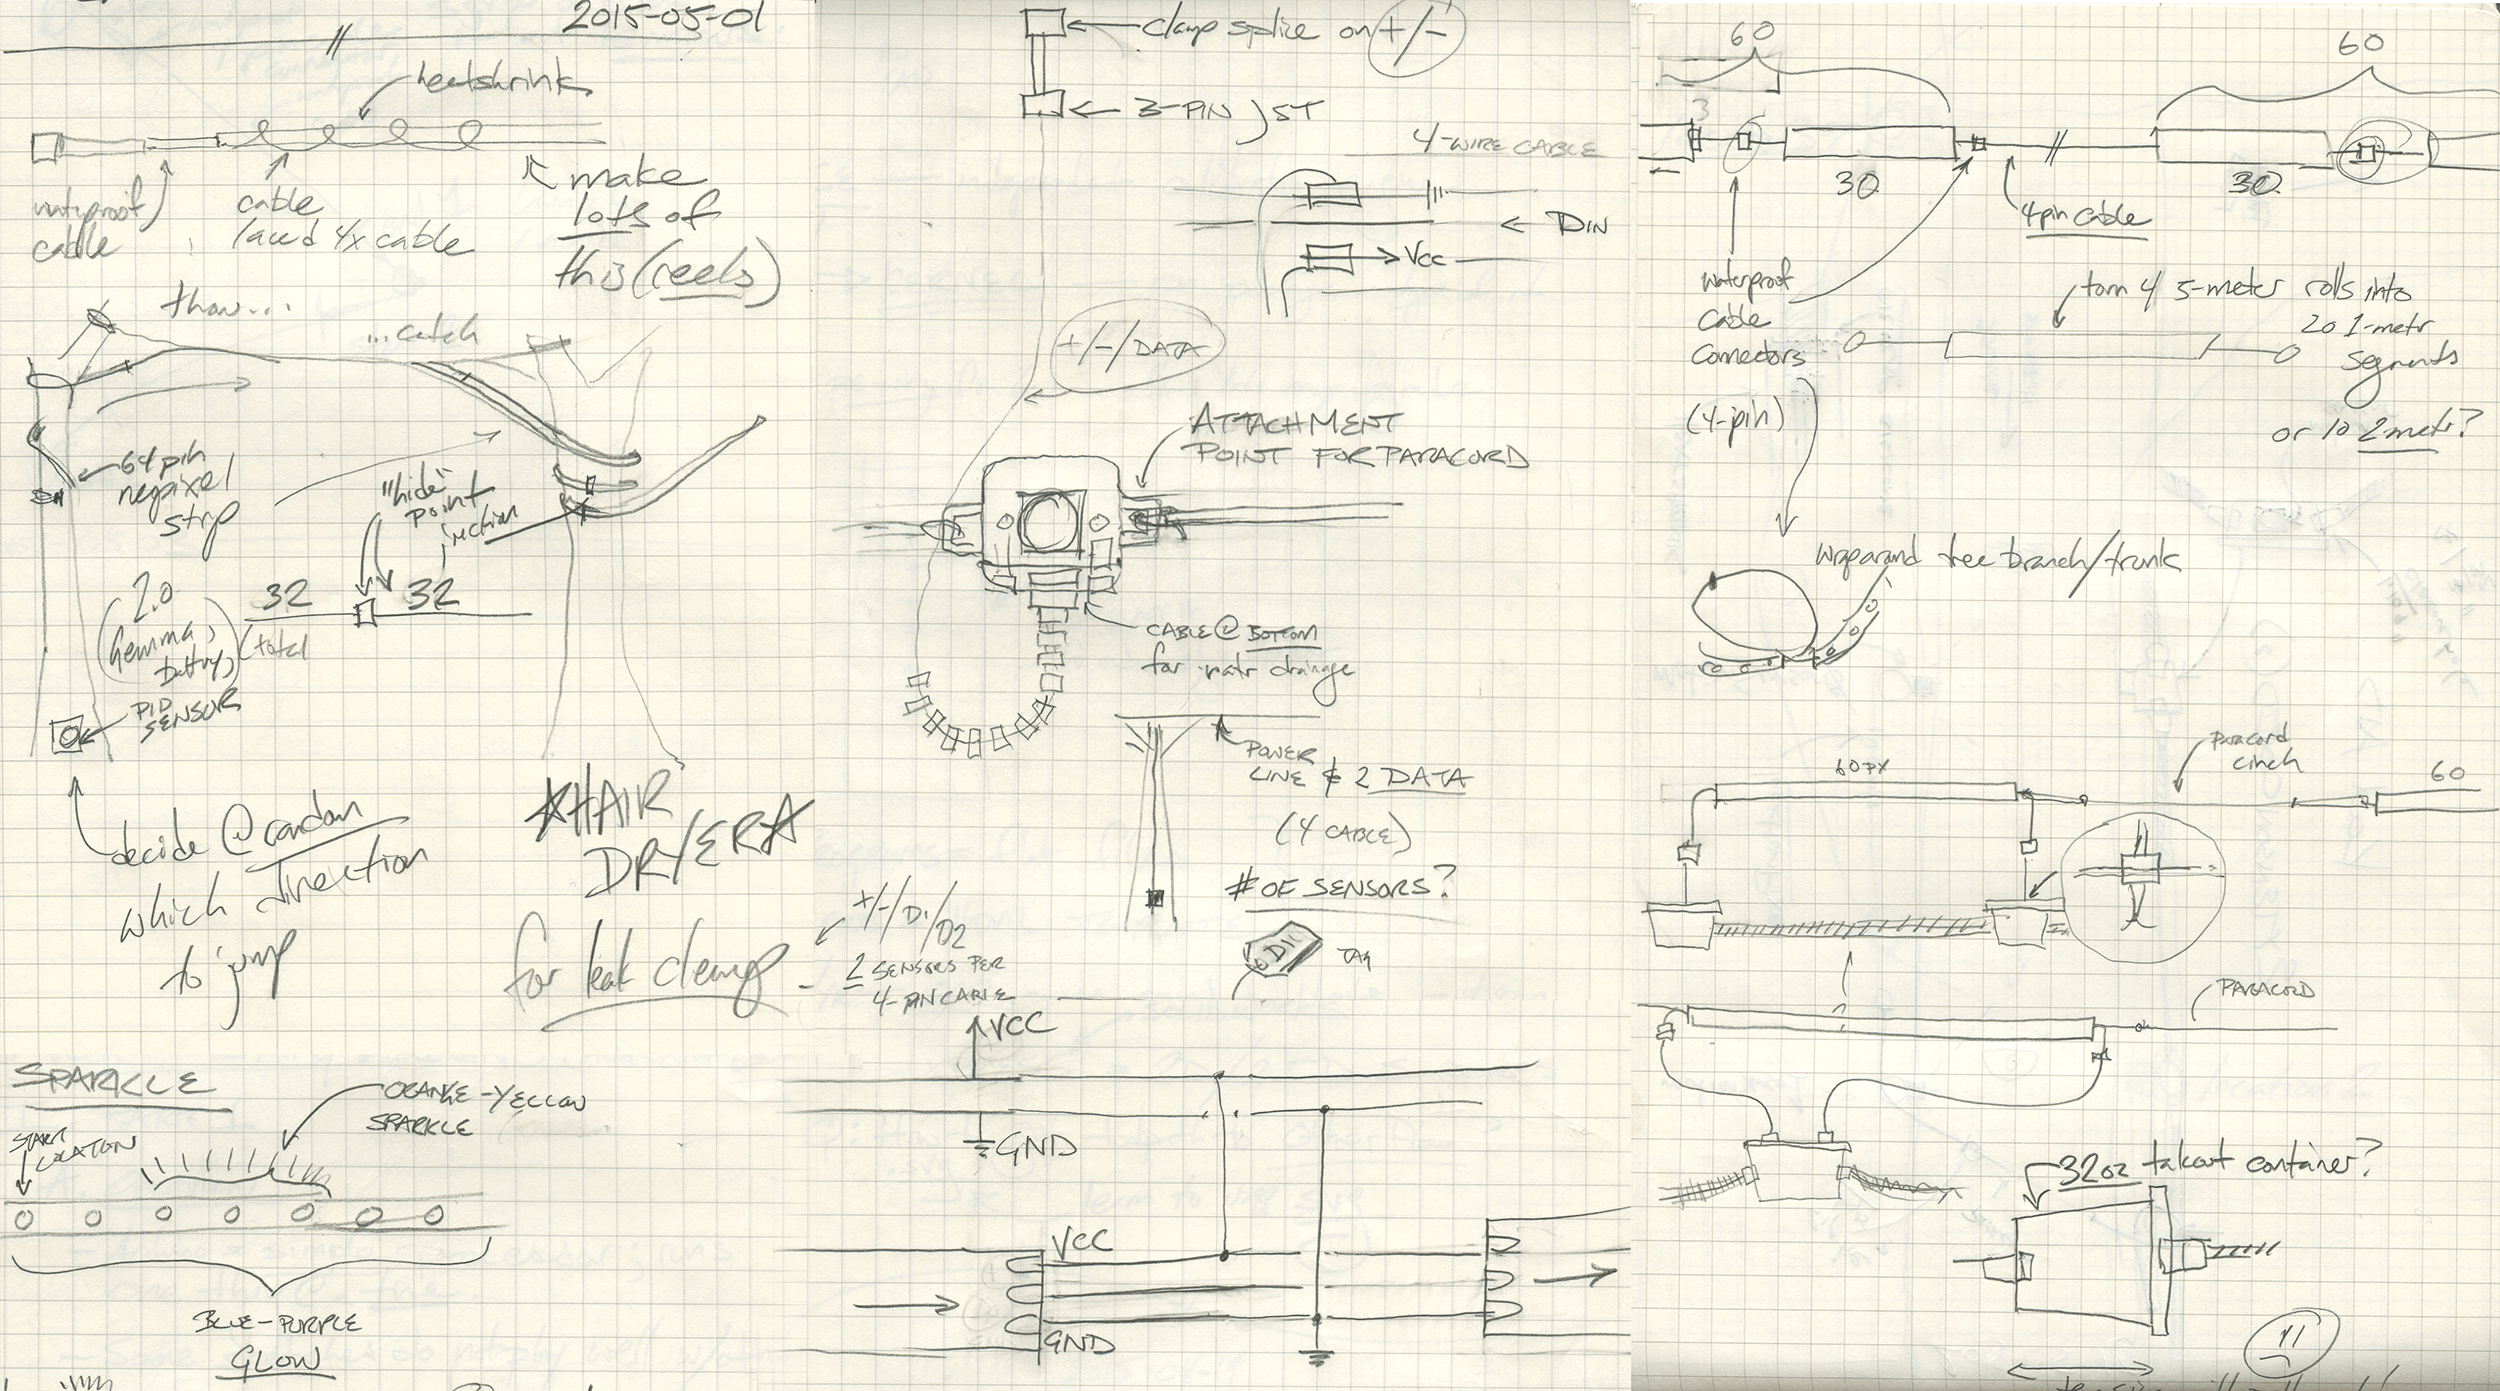 2015-05-01
heatshrink
waterproof
cable
cable
laced 4x cable
make
lots of
this (reels)
throw...
...catch
64 pin
neopixel
strip
"hide"
point
2.0
Gemma,
battery,
32
32
(total
PID
SENSOR
decide @ random
which direction
to jump
HAIR
DRYER
for leak cleanup
SPARKLE
START
LOCATION
ORANGE-YELLOW
SPARKLE
BLUE-PURPLE
GLOW
clamp splice on +/-
3-PIN JST
4-WIRE CABLE
DIN
VCC
+/-/DATA
ATTACHMENT
POINT FOR PARACORD
CABLE @ BOTTOM
for watr drainage
POWER
LINE & 2 DATA
(4 CABLE)
# OF SENSORS?
D1
TAG
+/-/D1/D2
2 SENSORS PER
4-PIN CABLE
VCC
GND
VCC
GND
60
60
3
30
30
4pin cable
waterproof
cable
connectors
(4-pin)
torn 4 5-meter rolls into
20 1-metr
segments
or 10 2 metr?
wrap around tree branch/trunk
60PX
paracord
cinch
60
?
PARACORD
32oz takeout container?
11